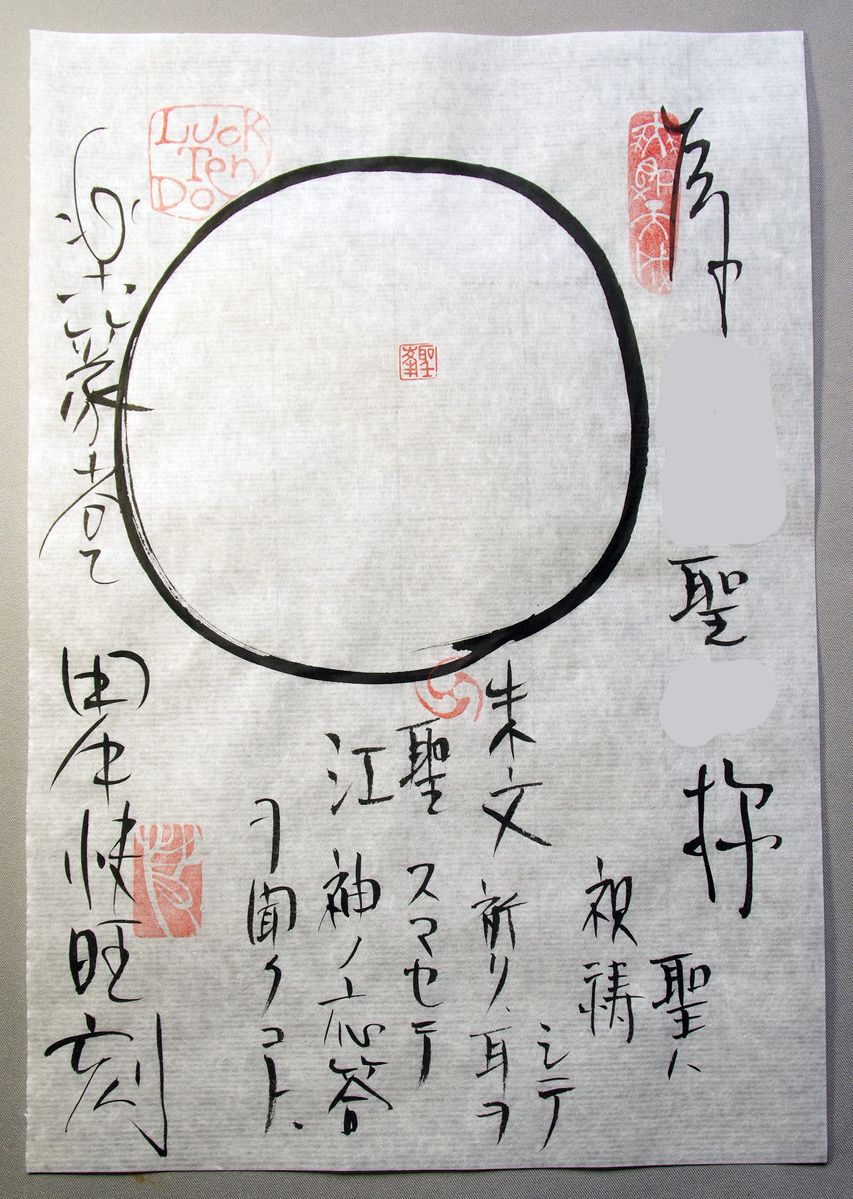 聖
聖ハ
祝祷
シテ
朱文
祈リ、耳ヲ
聖
スマセテ
江
神ノ応答
ヲ聞クコト.
Luck
Ten
Do
楽篆
田中快旺刻